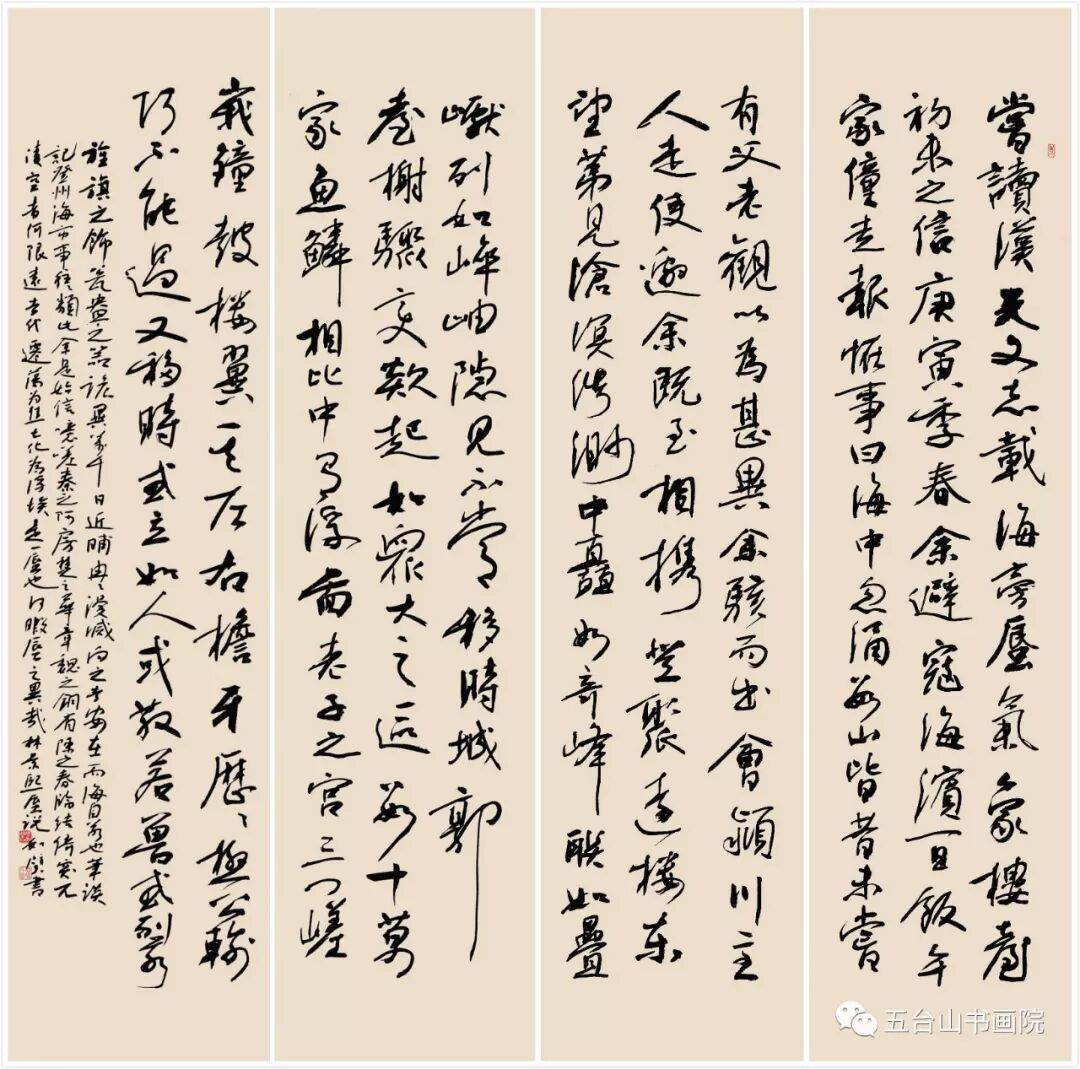 嘗讀漢天文志載海旁蜃氣象樓臺
初未之信庚寅季春余避寇海濱一日飯午
家僮走報怪事曰海中忽涌數山皆昔未嘗
有父老觀以為甚異余駭而出會潁川主
人走使邀余既至相攜登聚遠樓東
望第見滄溟浩渺中矗如奇峰聯如疊
巘列如崪岫隱見不常移時城郭
臺榭驟变欻起如眾大之區數十萬
家魚鱗相比中有浮圖老子之宮三门嵯
峨鐘鼓樓翼其左右檐牙歷歷極公輸
巧不能過又移時或立如人或散若獸或列若
旌旗之飾瓮盎之器詭異萬千日近晡冉冉漫滅向之有安在而海自若也筆談
記登州海市事往往類此余是始信噫嘻秦之阿房楚之華章魏之銅雀陳之春臨結綺突兀
凌空者何限遠去代遷蕩為焦土化為浮埃是一蜃也何暇蜃之異哉林景熙蜃說書
五台山书画院